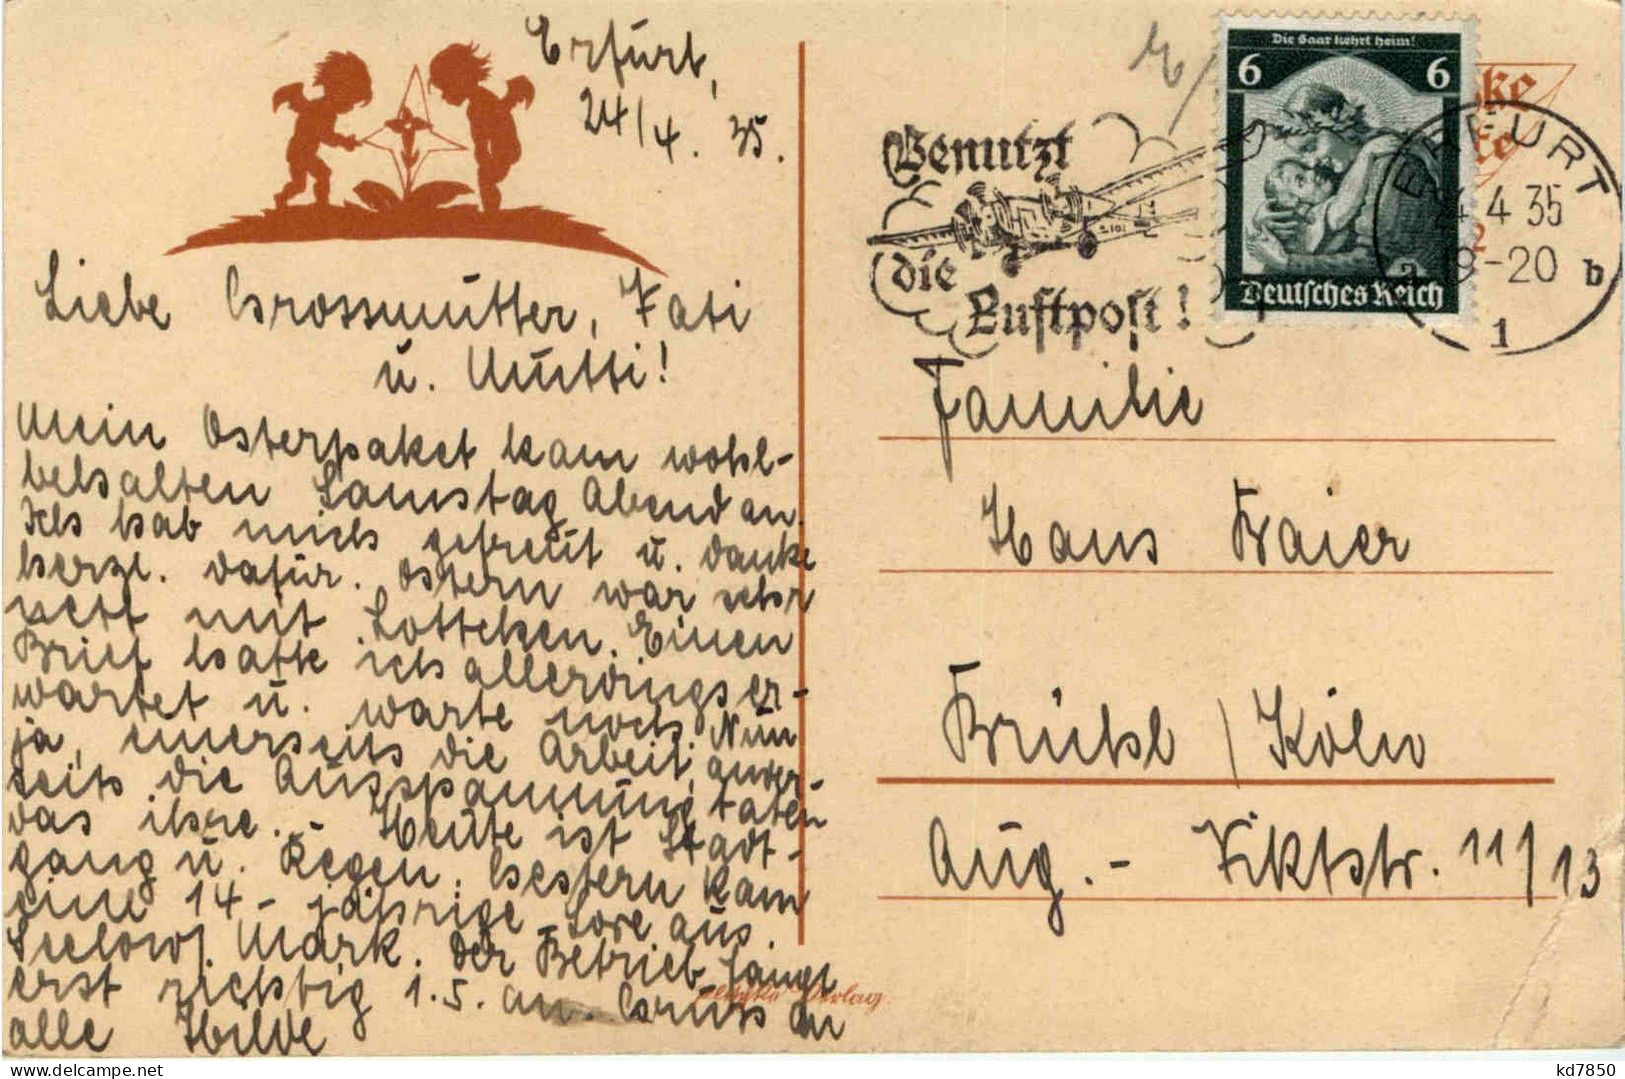 Erfurt,
24/4. 35.
Liebe Grossmutter, Vati
u. Mutti!
Mein Osterpaket kam wohl-
behalten Samstag Abend an.
Ich hab mich gefreut u. danke
herzl. dafür. Ostern war sehr
nett mit Lottchen. Einen
Brief hatte ich allerdings er-
wartet u. warte noch. Nun
ja, einerseits die Arbeit, ander-
seits die Ausspannung taten
das ihre. - Heute ist Stadt-
gang u. Regen. Gestern kam
eine 14-jährige Lore aus
Seelow, Mark. Der Betrieb fängt
erst richtig 1.5. an. Gruss an
alle Hilde
Verlag
Die Saar kehrt heim!
6 6
Deutsches Reich
Benutzt
die
Luftpost!
ERFURT
24.4.35
-20
a
b
1
Familie
Hans Baier
Brühl / Köln
Aug.- Viktstr. 11/13
kd7850